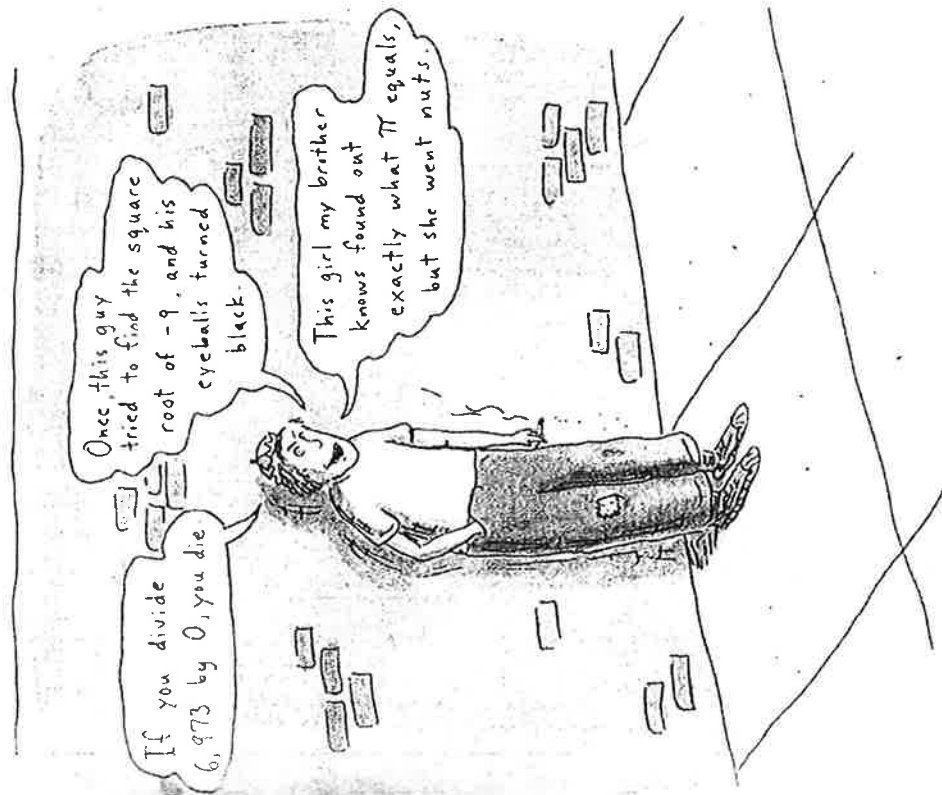 If you divide
6,973 by 0, you die
Once, this guy
tried to find the square
root of -9, and his
eyeballs turned
black.
This girl my brother
knows found out
exactly what π equals,
but she went nuts.